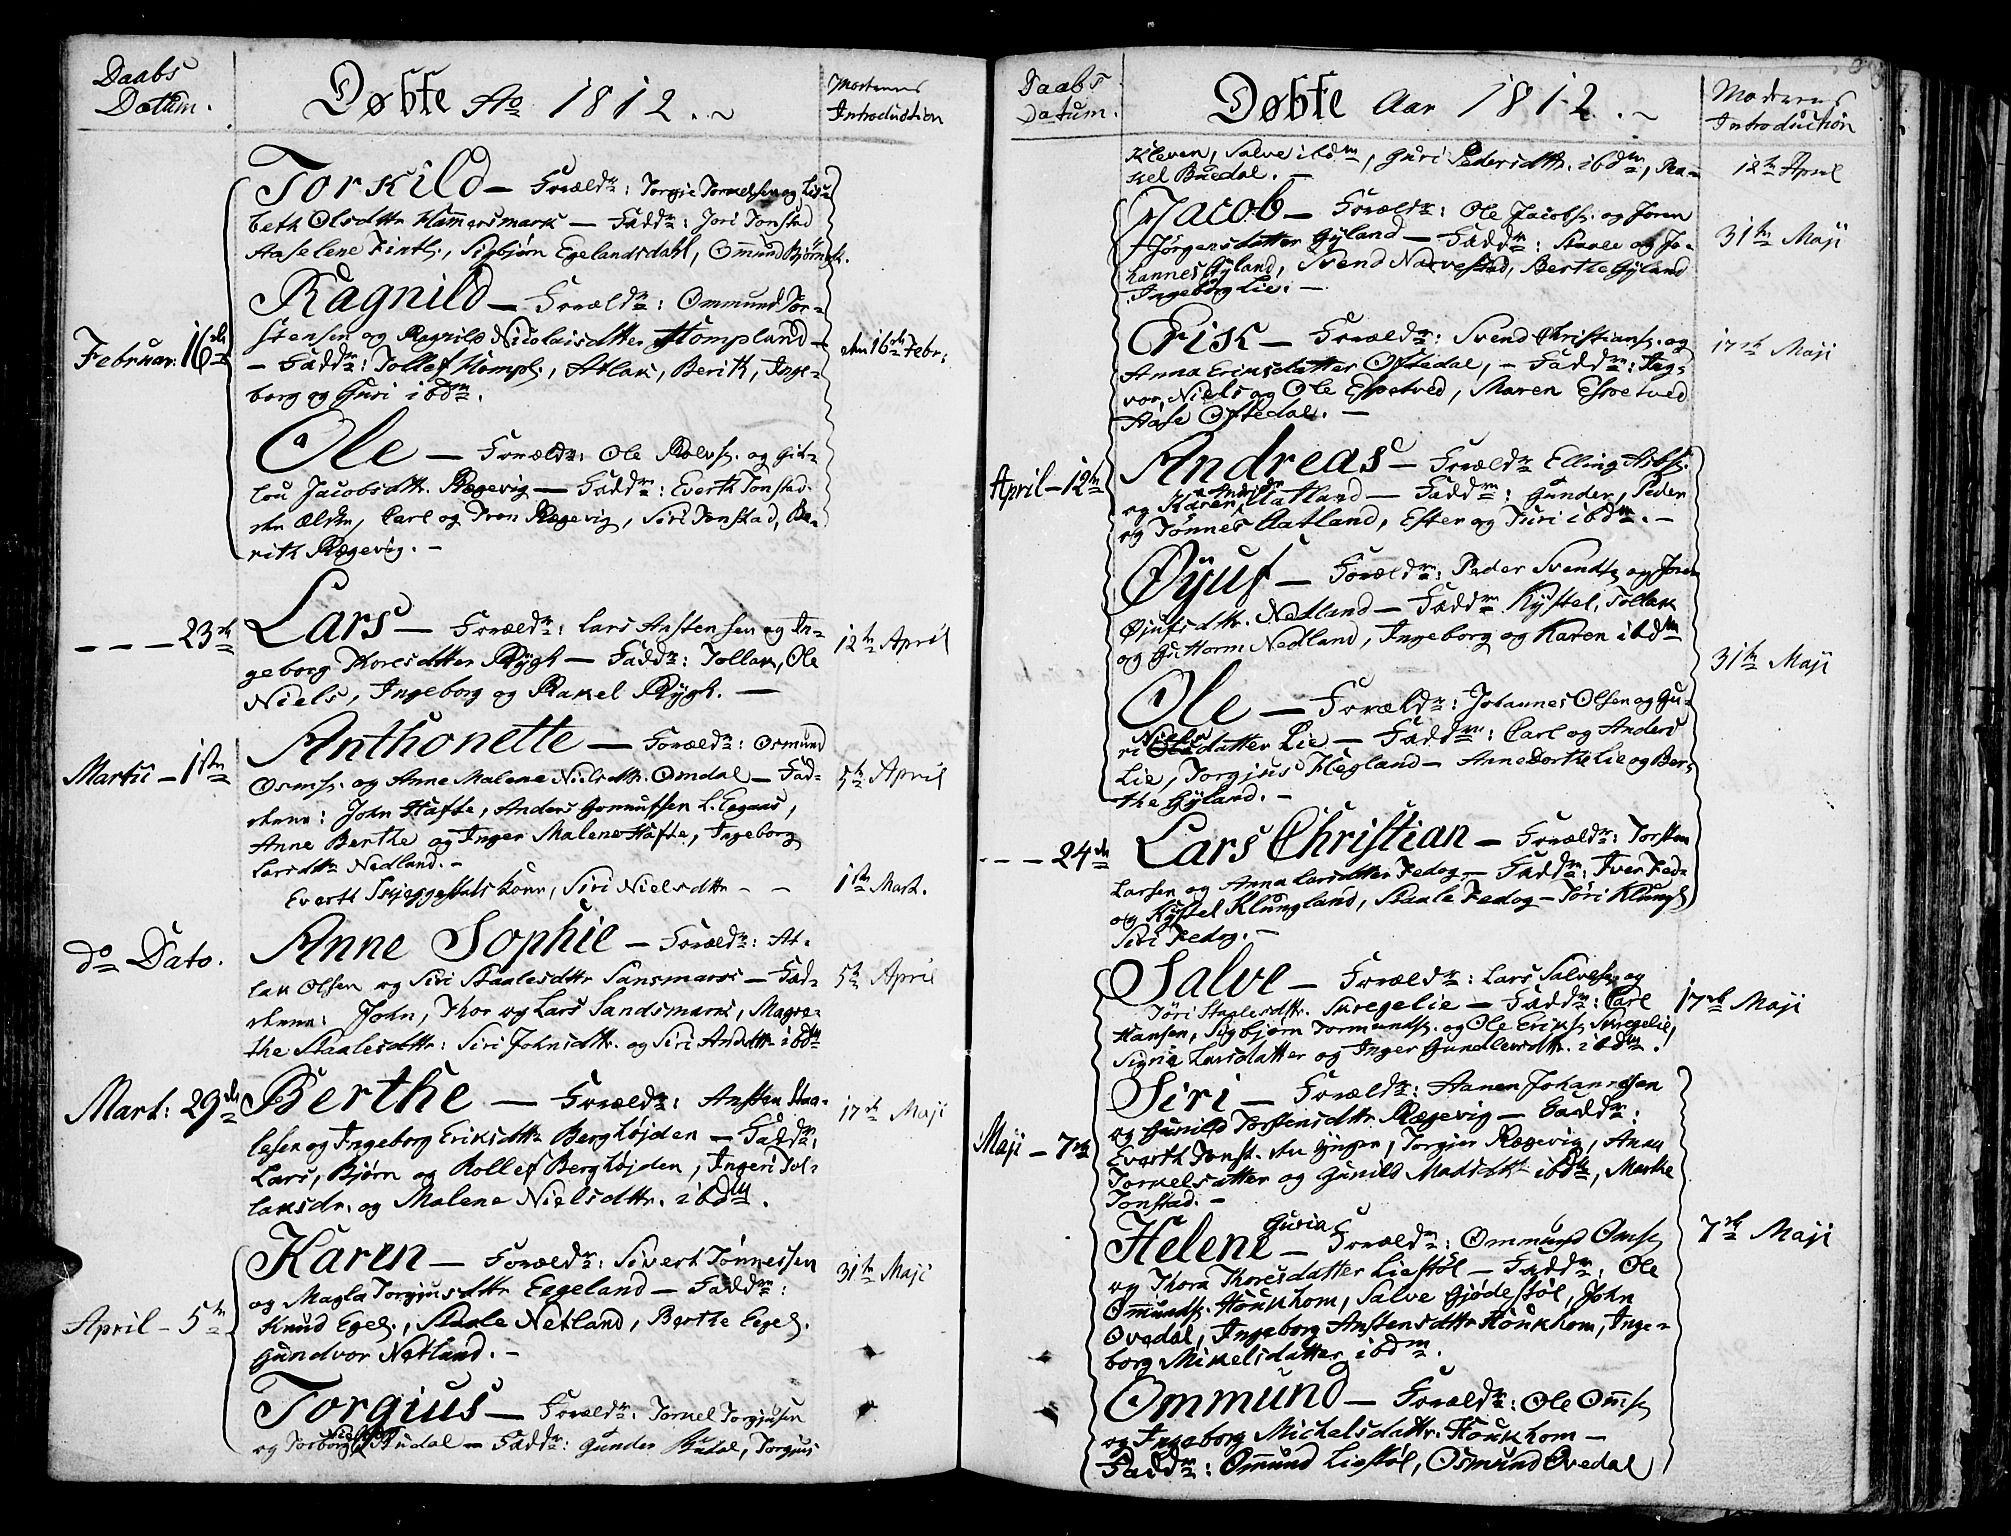 Daabs
Datum.
Døbte Ao 1812.
Moderens
Introduction
Torkild — Forældr: Torgie Torkelsen og Lisa-
beth Olsdttr Hammersmark — Faddr: Jori Tonstad
Aaselene Fintl., Sigbjørn Egelandsdahl, Ommund Bjørnsk.
Februar. 16de
Ragnild — Forældr: Ommund Tor-
stensen og Ragnild Nicolaisdtter Hompland —
— Faddr: Tollef Hompl., Atlak, Berith, Inge-
borg og Guri ibdm.
den 16de Febr:
Ole — Forældr: Ole Rolvs. og Git-
lou Jacobsdttr. Rægevig — Faddr: Everth Tonstad
den Ældre, Carl og Tron Rægevig, Siri Tonstad, Be-
rith Rægevig. —
- - - 23de
Lars — Forældr: Lars Anstensen og In-
geborg Thoresdtter Rygh — Faddr: Tollak, Ole
Niels, Ingeborg og Rakel Rygh. —
12te April
Martii - 1ste
Anthonette — Forældr: Osmund
Osms. og Anne Malene Nielsdttr. Omdal — Fad-
derne: John Hafte, Anders Gonnufsen L. Eegaas,
Anne Berthe og Inger Malene Hafte, Ingeborg
Larsdttr Nedland. —
5te April
Evertt Skjeggestads Kone, Siri Nielsdttr - -
1ste Mart.
do Dato.
Anne Sophie — Forældr: At-
lak Olsen og Siri Staalesdttr Sansmark — Fad-
derne: John, Thor og Lars Sandsmark, Magre-
the Staalesdttr: Siri Johnsdttr. og Siri Andttr ibdm
5te April
Mart: 29de
Berthe — Forældr: Ansten Staa-
lesen og Ingeborg Eriksdttr Berghøjden — Faddr:
Lars, Bjørn og Rollef Berghøjden, Ingeri Tol-
laksdr. og Malene Nielsdttr. ibdm.
17de Maji
April - 5te
Karen — Forældr: Sivert Tønnessen
og Magla Torgjusdttr Eegeland — Faddr:
Knud Egel., Staale Netland, Berthe Egel.
Gundvor Netland. —
31te Maji
Torgius — Forældr: Torkel Torgjusen
og Torborg Nielsd. Budal — Faddr: Gunder Budal, Torgjus
Daabs
Datum.
Døbte Aar 1812.
Moderens
Introduction
Kleven, Salve ibdm, Guri Pedersdttr. ibdm, Ra-
kel Buedal. —
12te April
Jacob — Forældr: Ole Jacobs. og Joren
Jørgensdatter Gyland — Faddr: Staale og Jo-
hannes Gyland, Svend Narvestad, Berthe Gyland
Ingeborg Lie: —
31te Maji
Erik — Forældr: Svend Christians. og
Anna Eriksdatter Oftedal, — Faddr: Ing-
vor, Niels og Ole Espetved, Maren Espetved
Aase Oftedal. —
17de Maji
April - 12te
Andreas — Forældr Elling Asbs.
og Karen Andrsdr Aatland — Faddr: Gunder, Peder
og Tønnes Aatland, Ester og Turi ibdm. —
Øyuf — Forældr: Peder Svends. og Joren
Øjufsdttr. Nedland — Faddr Kystel, Tollak
og Guttorm Nedland, Ingeborg og Karen ibdm
31te Maji
Ole — Forældr: Johannes Olsen og Gu-
ri Nielsdatter Lie — Faddr: Carl og Anders
Lie, Torgjus Flegland — Anne Dorthe Lie og Ber-
the Gyland. —
- - - 24de
Lars Christian — Forældr: Torsten
Larsen og Anna Larsdtter Fedog — Faddr: Iver Fed-
og Kystel Klungland, Staale Fedog — Tøri Klungl.
Siri Fedog. —
Salve — Forældr: Lars Salvesen og
Jøri Staalesdttr. Skregelie — Faddr: Carl
Hansen, Sigbjørn Tormunds. og Ole Eriks. Skregelie,
Sigria Larsdatter og Inger Gundersdttr. ibdm.
17de Maji
Maji - 7de
Siri — Forældr: Aanen Johannesen
og Gunild Torstensdttr Rægevig — Faddr:
Everth Tonst. den yngre, Torgier Rægevig, Anne
Torkelsdatter og Gunild Madsdttr ibdm, Marthe
Tonstad. —
Helene Guria — Forældr: Ommund Oms.
og Thora Thoresdatter Liestøl — Faddr: Ole
Ommunds. Houkhom, Salve Gjødestøl, John
Ovedal, Ingeborg Anstensdttr Houkhom, Inge-
borg Mikelsdatter ibdm.
7de Maji
Ommund — Forældr: Ole Oms.
og Ingeborg Michelsdattr. Houkhom —
Faddr: Ommund Liestøl, Osmund Ovedal